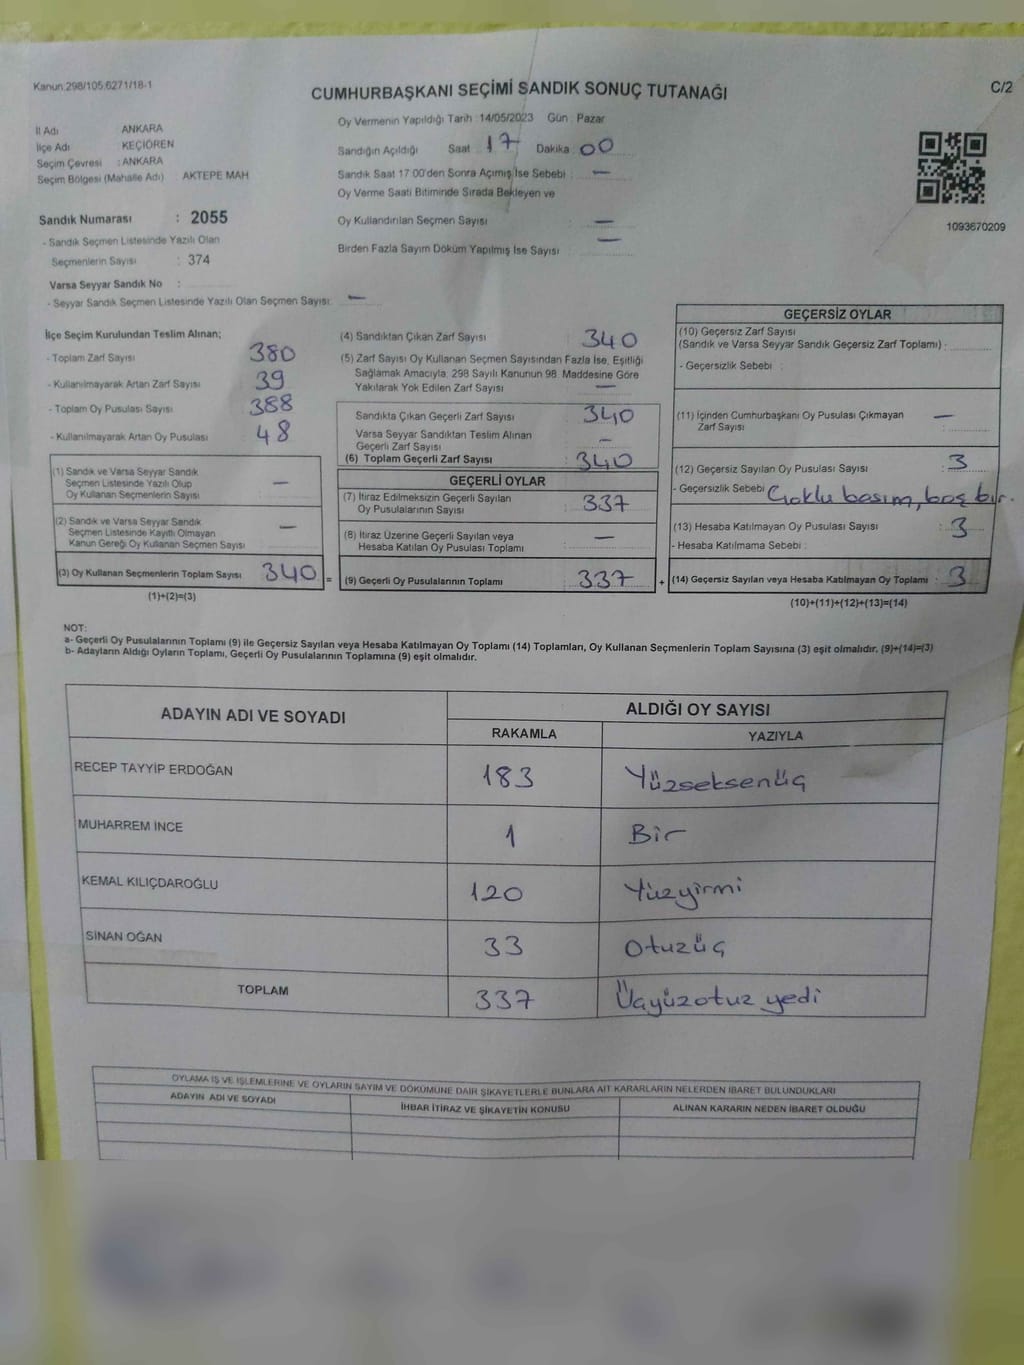 Kanun:298/105.6271/18-1
CUMHURBAŞKANI SEÇİMİ SANDIK SONUÇ TUTANAĞI
C/2
İl Adı ANKARA
İlçe Adı KEÇİÖREN
Seçim Çevresi : ANKARA
Seçim Bölgesi (Mahalle Adı) AKTEPE MAH
Oy Vermenin Yapıldığı Tarih :14/05/2023 Gün : Pazar
Sandığın Açıldığı Saat 17 Dakika 00
Sandık Saat 17 00'den Sonra Açılmış İse Sebebi : —
Oy Verme Saati Bitiminde Sırada Bekleyen ve
Oy Kullandırılan Seçmen Sayısı : —
Birden Fazla Sayım Döküm Yapılmış İse Sayısı : —
1093670209
Sandık Numarası : 2055
- Sandık Seçmen Listesinde Yazılı Olan
Seçmenlerin Sayısı : 374
Varsa Seyyar Sandık No :
- Seyyar Sandık Seçmen Listesinde Yazılı Olan Seçmen Sayısı: —
İlçe Seçim Kurulundan Teslim Alınan;
- Toplam Zarf Sayısı 380
- Kullanılmayarak Artan Zarf Sayısı 39
- Toplam Oy Pusulası Sayısı 388
- Kullanılmayarak Artan Oy Pusulası 48
(1) Sandık ve Varsa Seyyar Sandık
Seçmen Listesinde Yazılı Olup
Oy Kullanan Seçmenlerin Sayısı —
(2) Sandık ve Varsa Seyyar Sandık
Seçmen Listesinde Kayıtlı Olmayan
Kanun Gereği Oy Kullanan Seçmen Sayısı —
(3) Oy Kullanan Seçmenlerin Toplam Sayısı 340 =
(1)+(2)=(3)
(4) Sandıktan Çıkan Zarf Sayısı : 340
(5) Zarf Sayısı Oy Kullanan Seçmen Sayısından Fazla İse, Eşitliği
Sağlamak Amacıyla, 298 Sayılı Kanunun 98. Maddesine Göre
Yakılarak Yok Edilen Zarf Sayısı : —
Sandıkta Çıkan Geçerli Zarf Sayısı : 340
Varsa Seyyar Sandıktan Teslim Alınan
Geçerli Zarf Sayısı : —
(6) Toplam Geçerli Zarf Sayısı : 340
GEÇERLİ OYLAR
(7) İtiraz Edilmeksizin Geçerli Sayılan
Oy Pusulalarının Sayısı : 337
(8) İtiraz Üzerine Geçerli Sayılan veya
Hesaba Katılan Oy Pusulası Toplamı : —
(9) Geçerli Oy Pusulalarının Toplamı : 337 +
GEÇERSİZ OYLAR
(10) Geçersiz Zarf Sayısı
(Sandık ve Varsa Seyyar Sandık Geçersiz Zarf Toplamı) :
- Geçersizlik Sebebi :
(11) İçinden Cumhurbaşkanı Oy Pusulası Çıkmayan
Zarf Sayısı : —
(12) Geçersiz Sayılan Oy Pusulası Sayısı : 3
- Geçersizlik Sebebi Çoklu basım, boş bir.
(13) Hesaba Katılmayan Oy Pusulası Sayısı : 3
- Hesaba Katılmama Sebebi :
(14) Geçersiz Sayılan veya Hesaba Katılmayan Oy Toplamı : 3
(10)+(11)+(12)+(13)=(14)
NOT:
a- Geçerli Oy Pusulalarının Toplamı (9) ile Geçersiz Sayılan veya Hesaba Katılmayan Oy Toplamı (14) Toplamları, Oy Kullanan Seçmenlerin Toplam Sayısına (3) eşit olmalıdır. (9)+(14)=(3)
b- Adayların Aldığı Oyların Toplamı, Geçerli Oy Pusulalarının Toplamına (9) eşit olmalıdır.
ADAYIN ADI VE SOYADI
ALDIĞI OY SAYISI
RAKAMLA YAZIYLA
RECEP TAYYİP ERDOĞAN 183 Yüzseksenüç
MUHARREM İNCE 1 Bir
KEMAL KILIÇDAROĞLU 120 Yüzyirmi
SİNAN OĞAN 33 Otuzüç
TOPLAM 337 Üçyüzotuz yedi
OYLAMA İŞ VE İŞLEMLERİNE VE OYLARIN SAYIM VE DÖKÜMÜNE DAİR ŞİKAYETLERLE BUNLARA AİT KARARLARIN NELERDEN İBARET BULUNDUKLARI
ADAYIN ADI VE SOYADI İHBAR İTİRAZ VE ŞİKAYETİN KONUSU ALINAN KARARIN NEDEN İBARET OLDUĞU